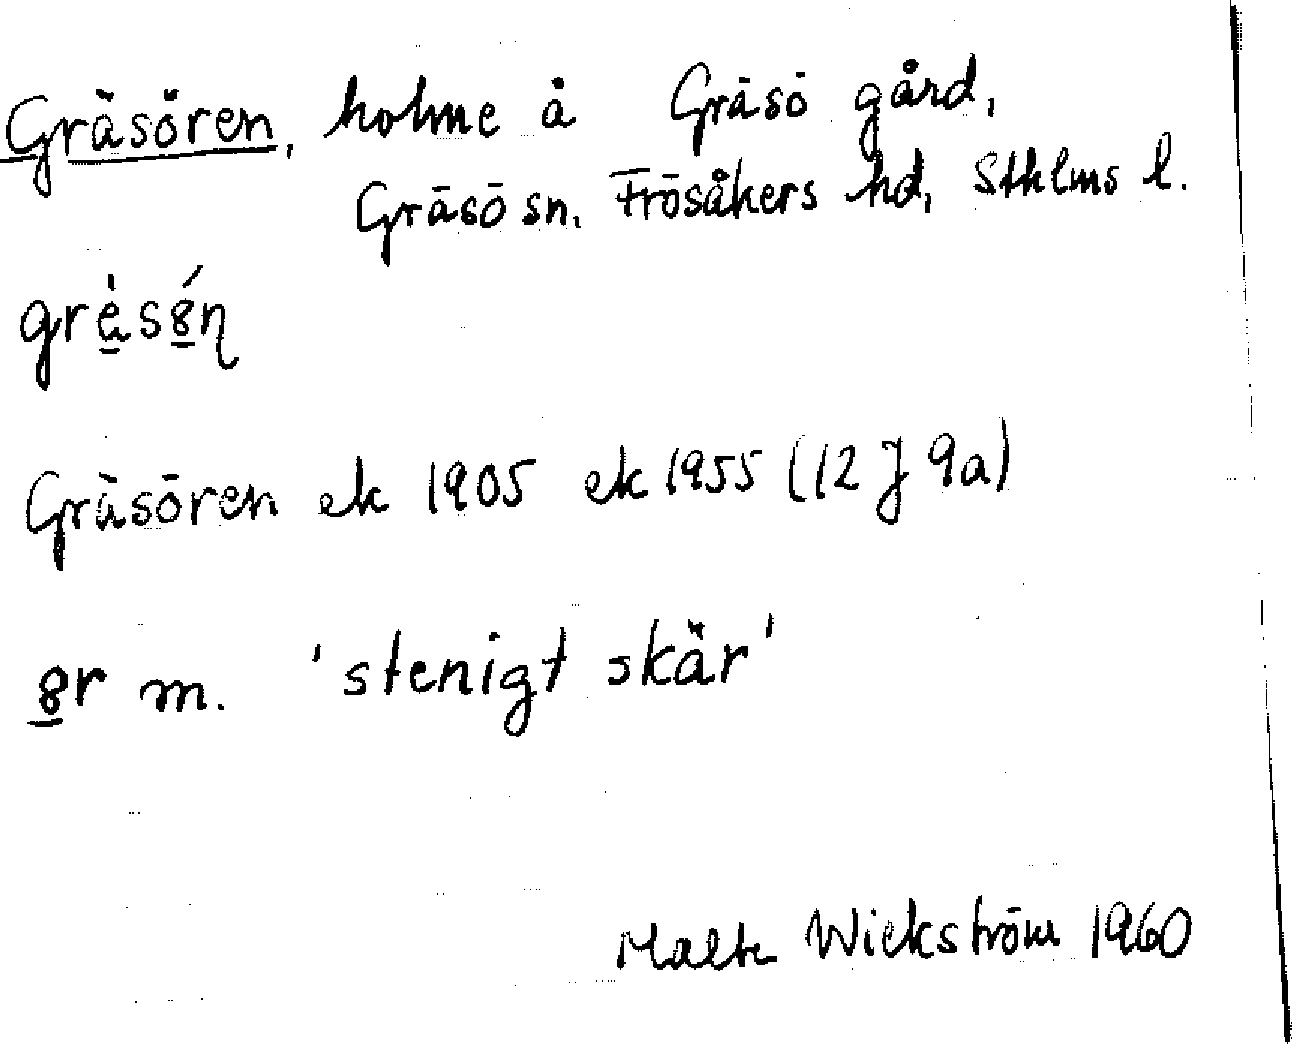 Gräsören, holme å Gräsö gård,
Gräsö sn. Frösåkers hd, Sthlms l.
grè̱s8̱́ɳ
Gräsören ek 1905 ek 1955 (12 J 9a)
8̱r m. 'stenigt skär'
Malte Wickström 1960